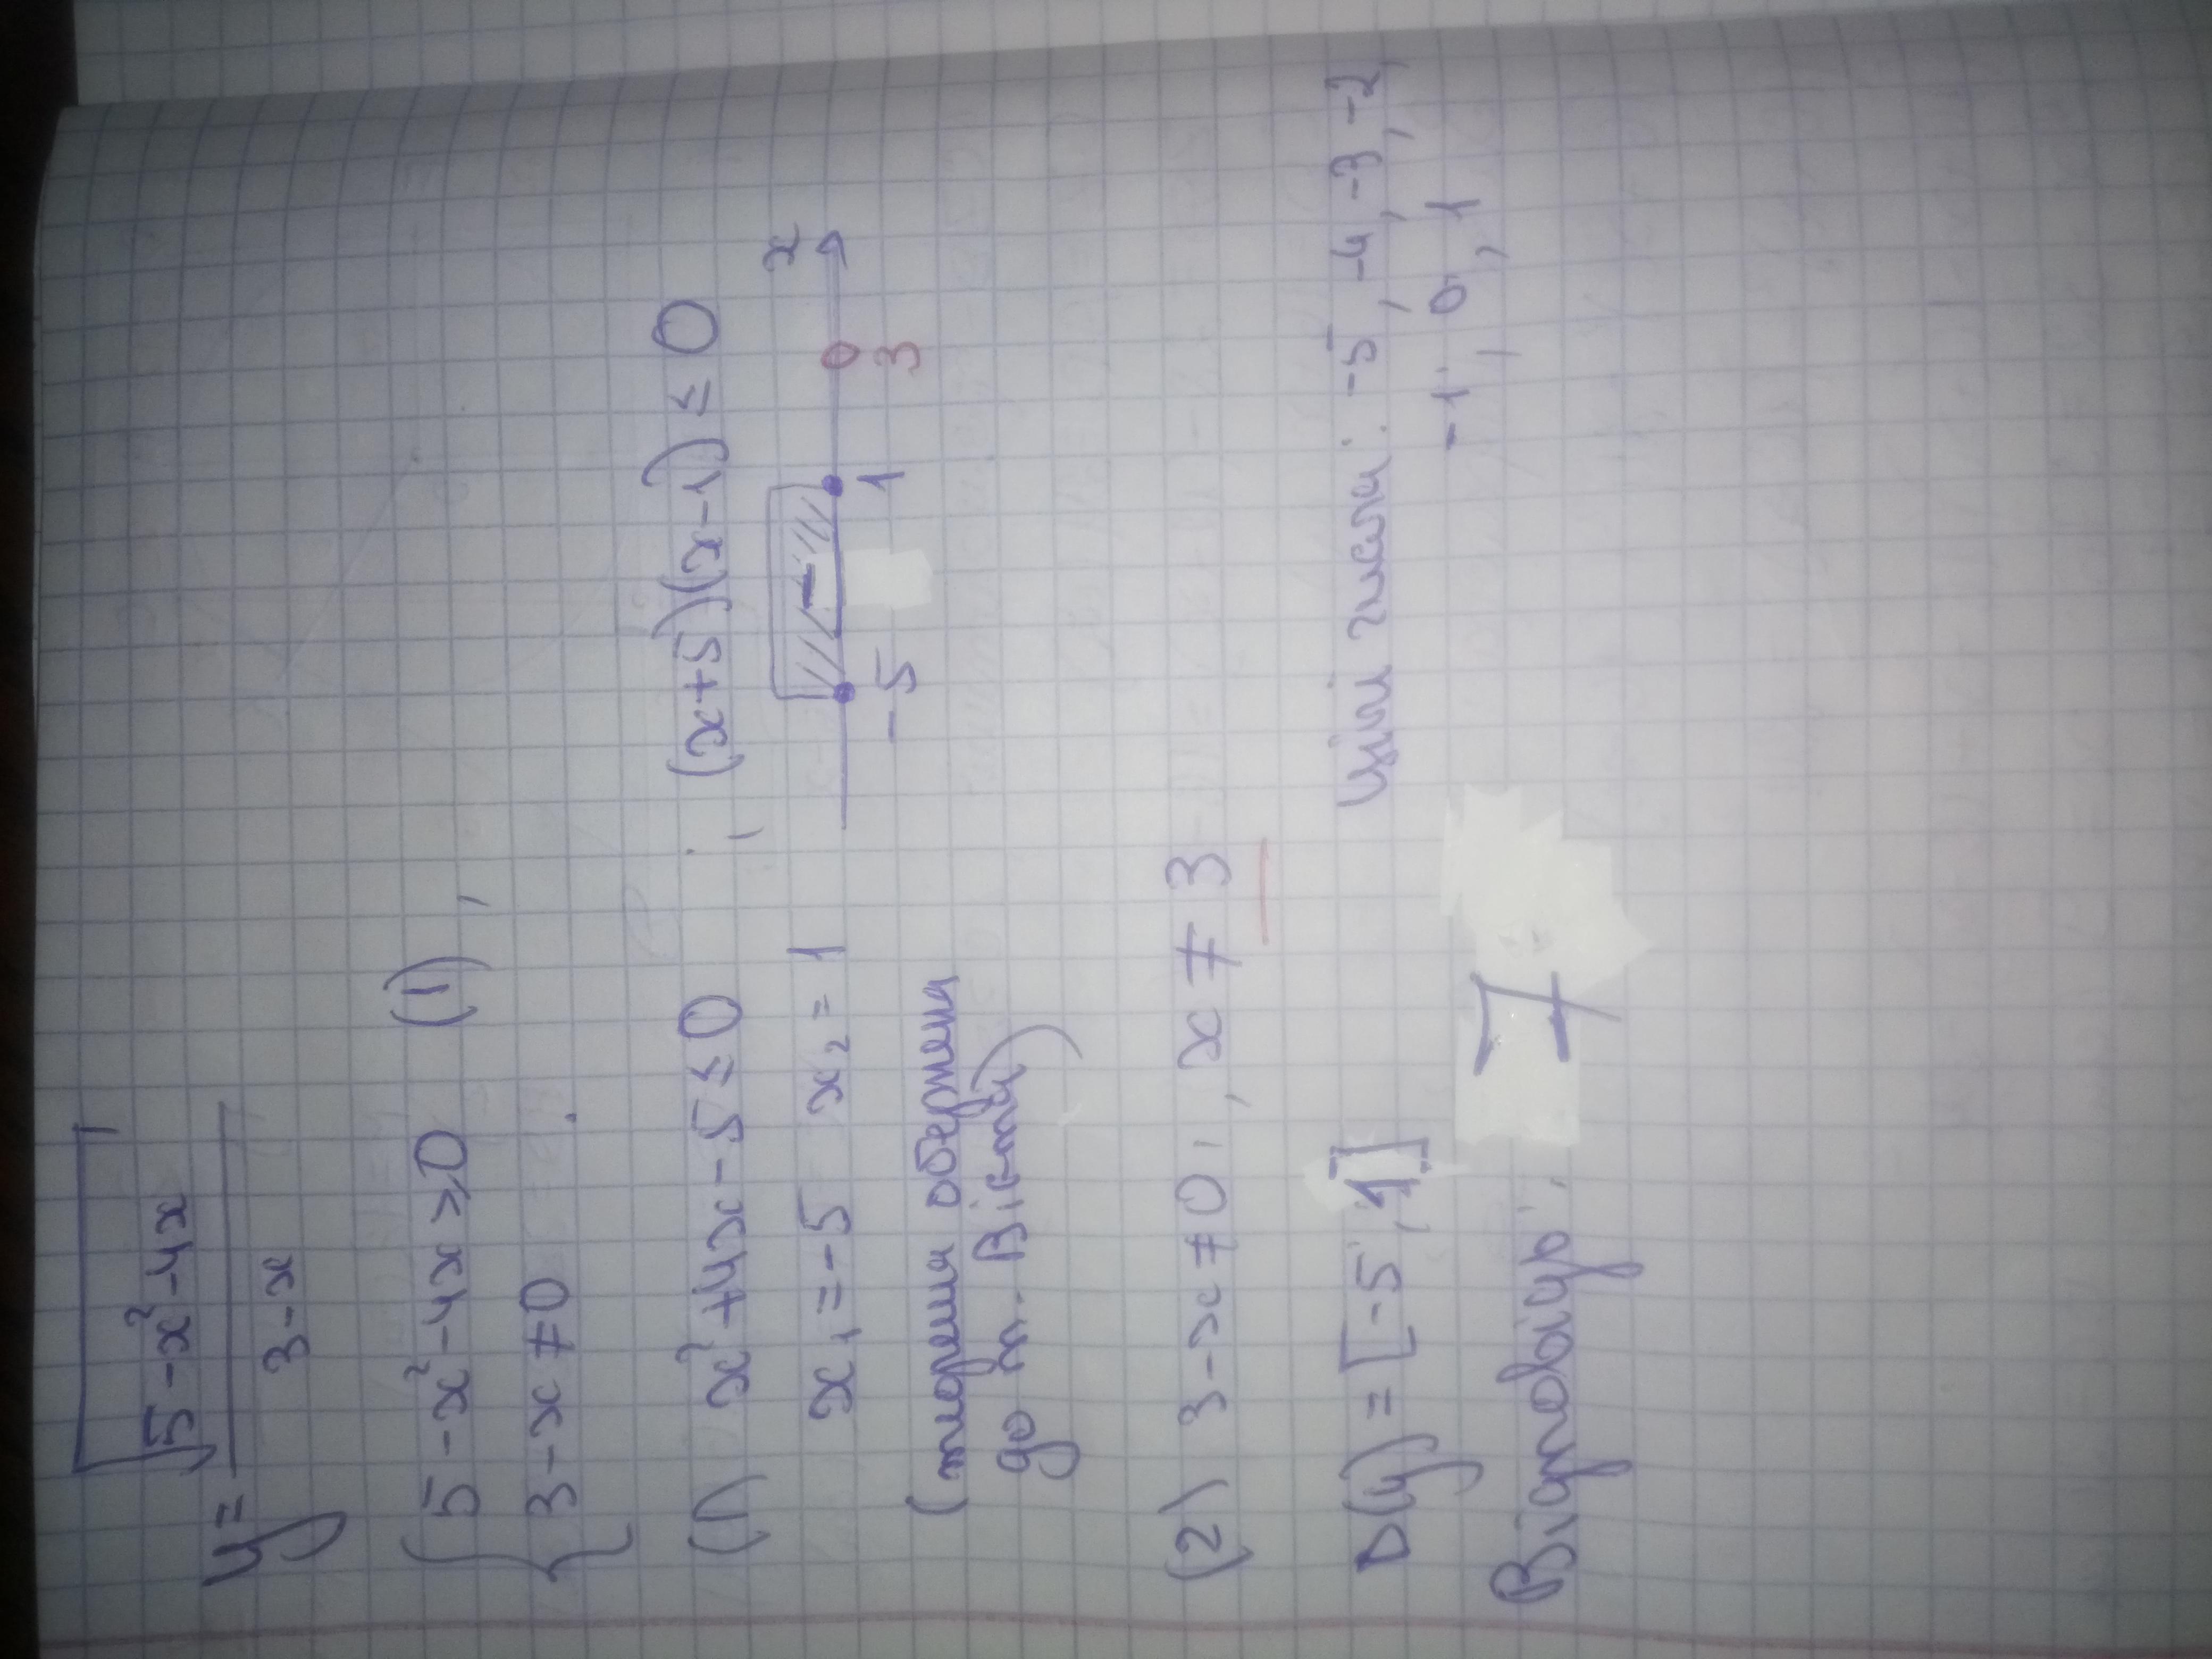 y = √(5-x²-4x) / (3-x)
{ 5-x²-4x ≥ 0 (1),
3-x ≠ 0 .
(1) x²+4x-5 ≤ 0 ; (x+5)(x-1) ≤ 0
x₁ = -5 x₂ = 1
- x
-5 1 3
(теорема обернена
до т. Вієтта)
(2) 3-x ≠ 0, x ≠ 3
D(y) = [-5; 1] Цілі числа: -5, -4, -3, -2,
-1, 0, 1
Відповідь: 7